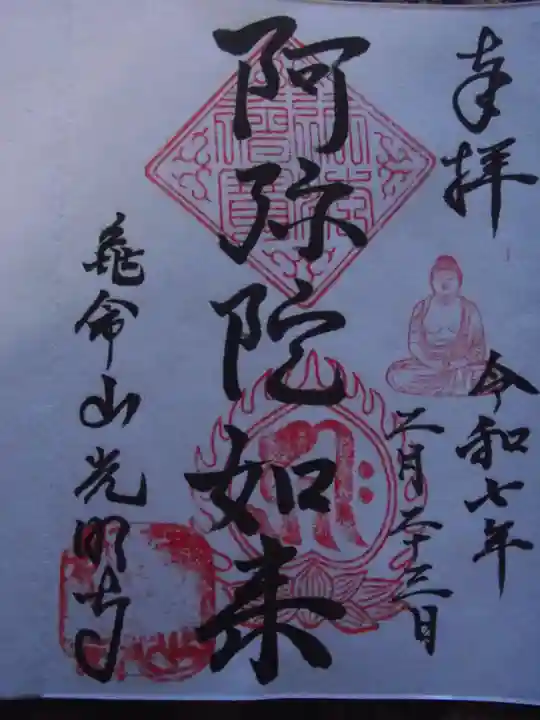 奉拝
令和七年
二月二十三日
阿弥陀如来
亀命山光明寺